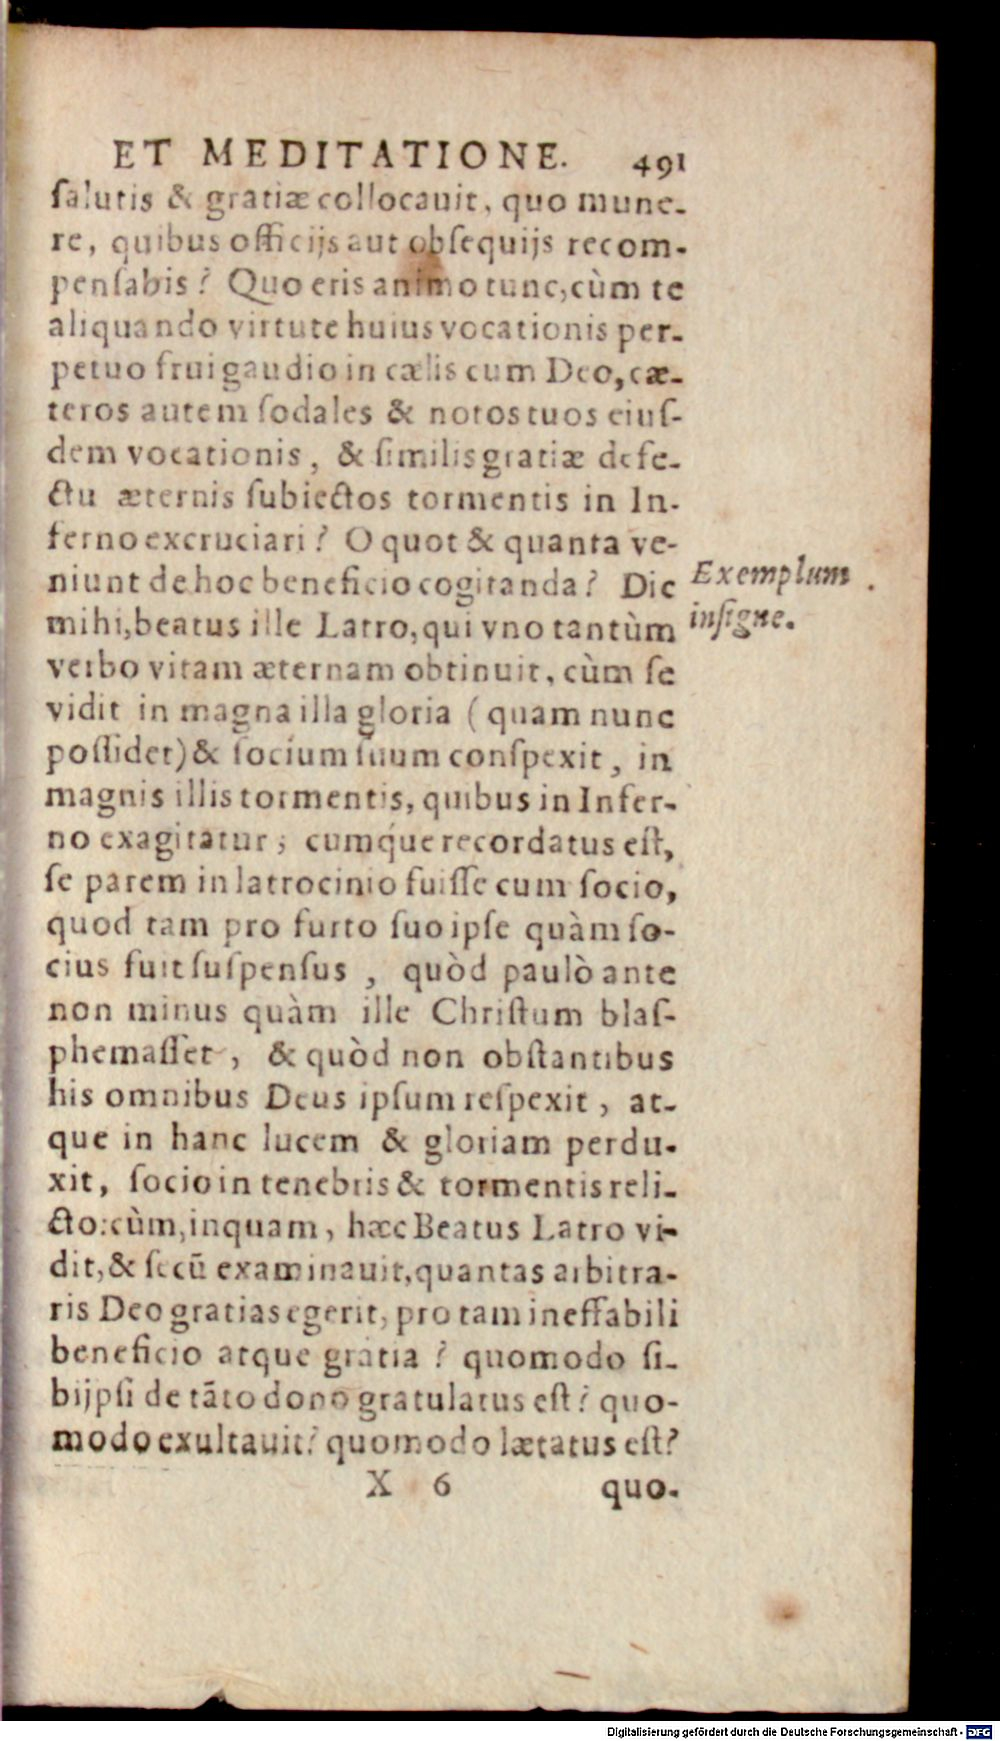 ET MEDITATIONE. 491
ſalutis & gratiæ collocauit, quo mune-
re, quibus officijs aut obſequijs recom-
penſabis? Quo eris animo tunc, cùm te
aliquando virtute huius vocationis per-
petuo frui gaudio in cælis cum Deo, cæ-
teros autem ſodales & notos tuos eiuſ-
dem vocationis, & ſimilis gratiæ defe-
ctu æternis ſubiectos tormentis in In-
ferno excruciari? O quot & quanta ve-
niunt de hoc beneficio cogitanda? Dic
Exemplum
inſigne.
mihi, beatus ille Latro, qui vno tantùm
verbo vitam æternam obtinuit, cùm ſe
vidit in magna illa gloria (quam nunc
poſſidet) & ſocium ſuum conſpexit, in
magnis illis tormentis, quibus in Infer-
no exagitatur; cumq́ue recordatus eſt,
ſe parem in latrocinio fuiſſe cum ſocio,
quod tam pro furto ſuo ipſe quàm ſo-
cius fuit ſuſpenſus, quòd paulò ante
non minus quàm ille Chriſtum blaſ-
phemaſſet, & quòd non obſtantibus
his omnibus Deus ipſum reſpexit, at-
que in hanc lucem & gloriam perdu-
xit, ſocio in tenebris & tormentis reli-
cto: cùm, inquam, hæc Beatus Latro vi-
dit, & ſecū examinauit, quantas arbitra-
ris Deo gratias egerit, pro tam ineffabili
beneficio atque gratia? quomodo ſi-
bijpſi de tāto dono gratulatus eſt? quo-
modo exultauit? quomodo lætatus eſt?
X 6 quo-
Digitalisierung gefördert durch die Deutsche Forschungsgemeinschaft - DFG